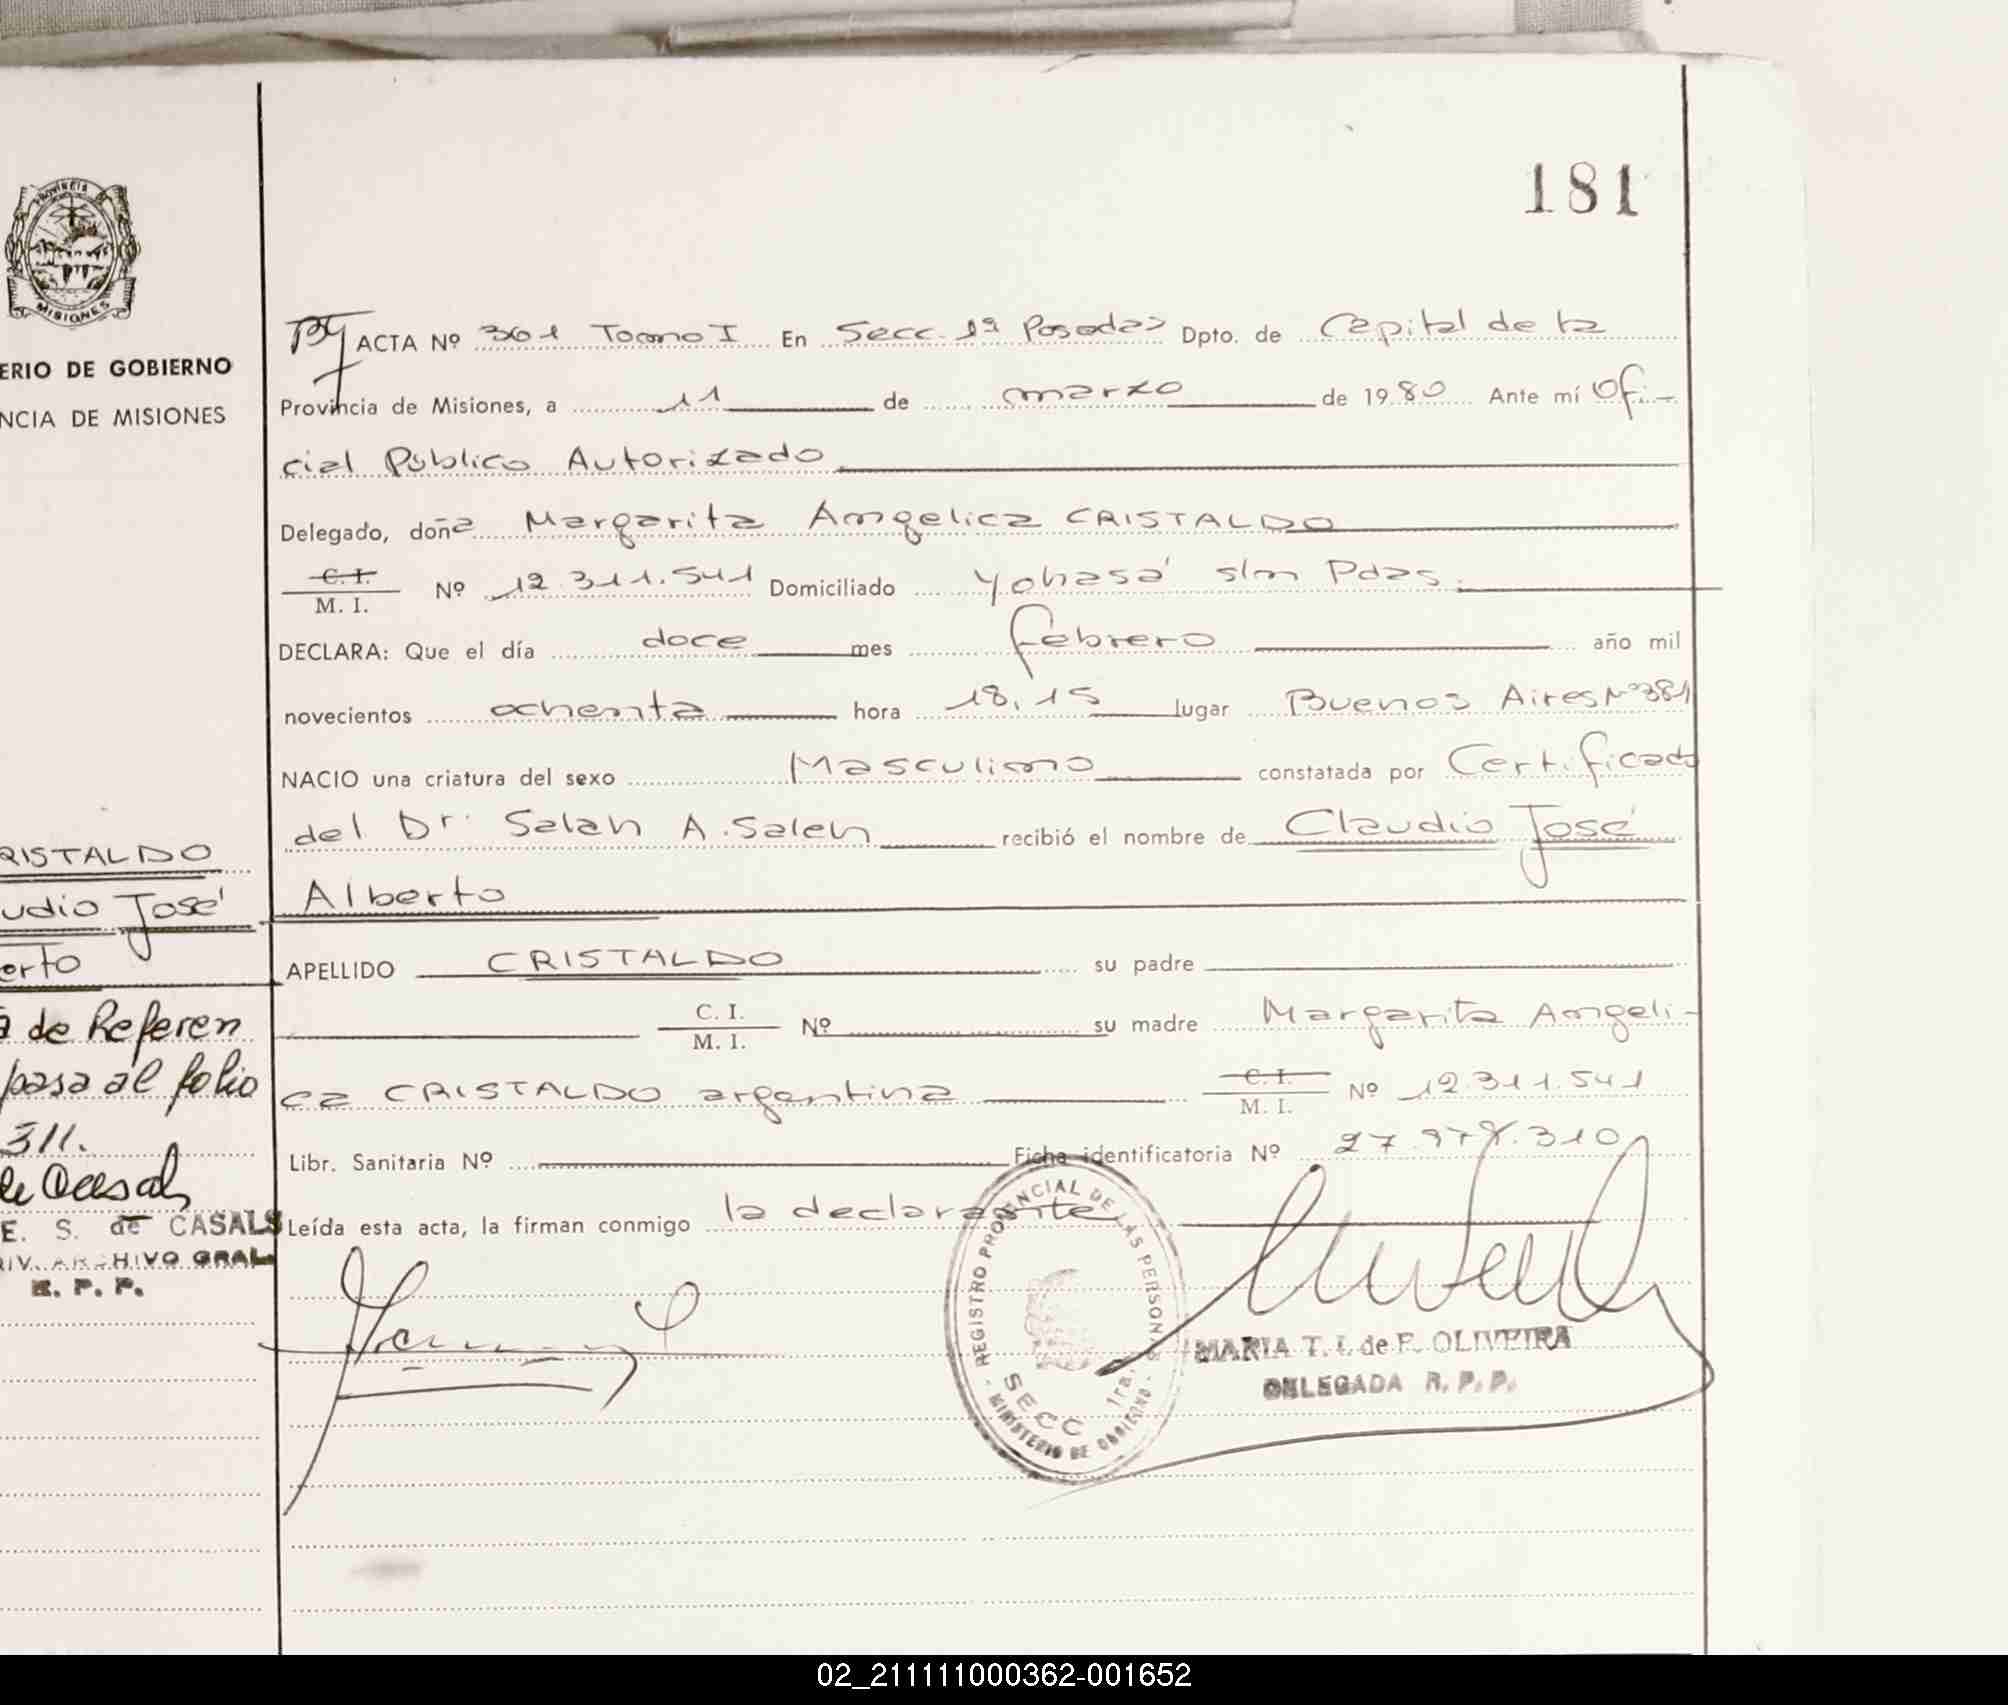 181
PROVINCIA
MISIONES
ERIO DE GOBIERNO
NCIA DE MISIONES
ACTA Nº 361 Tomo I En Secc. 1ª Posadas Dpto. de Capital de la
Provincia de Misiones, a 11 de marzo de 1980 Ante mí Ofi-
cial Público Autorizado
Delegado, doña Margarita Angelica CRISTALDO
C. I.
M. I. Nº 12.311.541 Domiciliado Yohasá s/n Pdas.
DECLARA: Que el día doce mes febrero año mil
novecientos ochenta hora 18,15 lugar Buenos Aires Nº 381
NACIO una criatura del sexo Masculino constatada por Certificado
del Dr. Salah A. Saleh recibió el nombre de Claudio José
Alberto
APELLIDO CRISTALDO su padre
C. I.
M. I. Nº su madre Margarita Angeli-
ca CRISTALDO argentina C. I.
M. I. Nº 12.311.541
Libr. Sanitaria Nº Ficha identificatoria Nº
Leída esta acta, la firman conmigo la declarante
RISTALDO
udio José
erto
de Referen
pasa al folio
311.
E. S. de CASALS
IV. ARCHIVO GRAL.
R. P. P.
REGISTRO PROVINCIAL DE LAS PERSONAS
SECC 1ra.
MINISTERIO DE GOBIERNO
MARIA T. I. de F. OLIVEIRA
DELEGADA R. P. P.
02_211111000362-001652